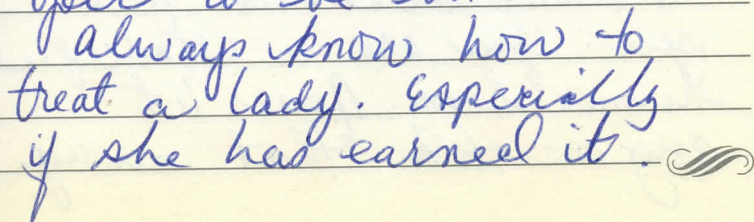 always know how to
treat a lady. Especially
if she has earned it.